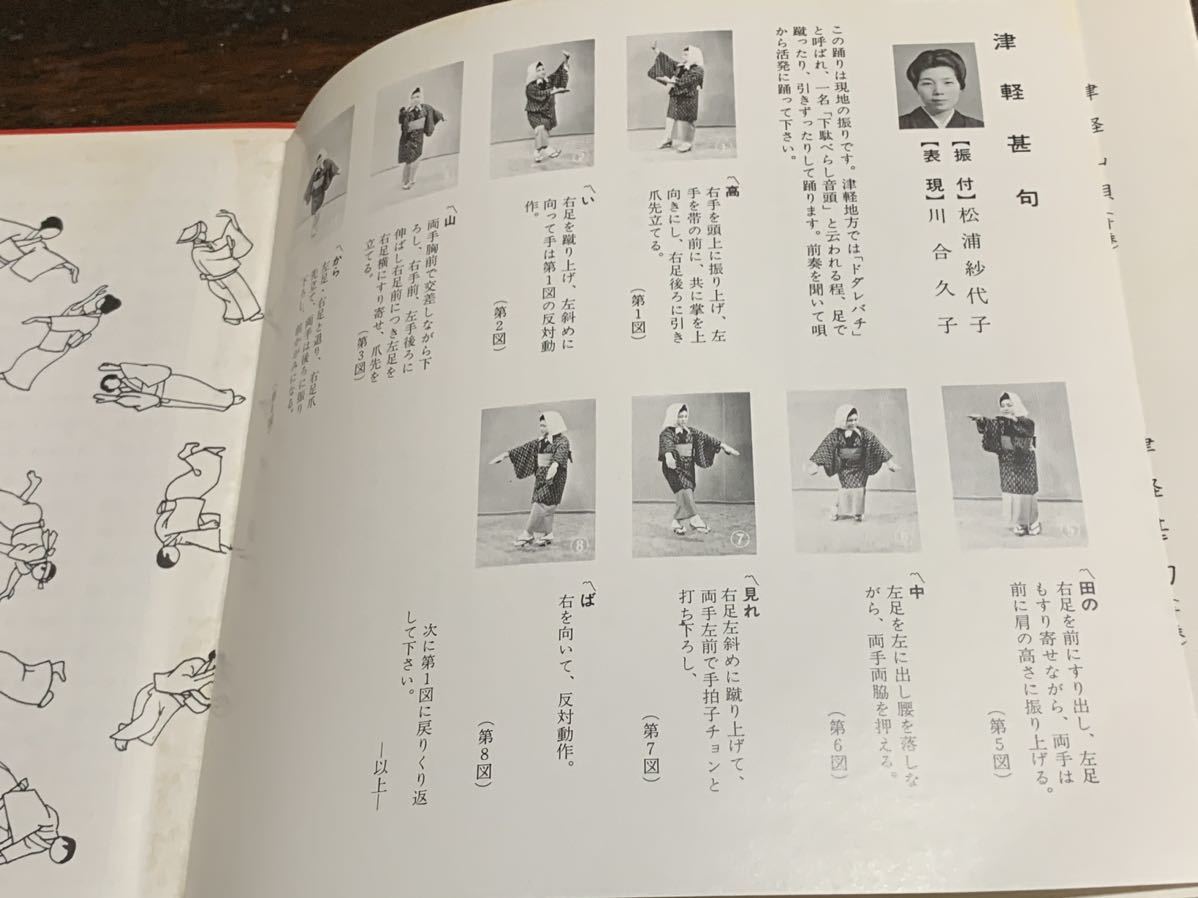 津軽甚句
【振付】松浦紗代子
【表現】川合久子
この踊りは現地の振りです。津軽地方では「ドダレバチ」
と呼ばれ、一名「下駄べらし音頭」と云われる程、足で
蹴ったり、引きずったりして踊ります。前奏を聞いて唄
から活発に踊って下さい。
〽高
右手を頭上に振り上げ、左
手を帯の前に、共に掌を上
向きにし、右足後ろに引き
爪先立てる。
(第1図)
〽い
右足を蹴り上げ、左斜めに
向って手は第1図の反対動
作。
(第2図)
〽山
両手胸前で交差しながら下
ろし、右手前、左手後ろに
伸ばし右足前につき左足を
右足横にすり寄せ、爪先を
立てる。
(第3図)
〽から
左足・右足と退り、右足爪
先立て、両手は後ろに振り
下ろし、前かがみになる。
〽田の
右足を前にすり出し、左足
もすり寄せながら、両手は
前に肩の高さに振り上げる。
(第5図)
〽中
左足を左に出し腰を落しな
がら、両手両脇を押える。
(第6図)
〽見れ
右足左斜めに蹴り上げて、
両手左前で手拍子チョンと
打ち下ろし、
(第7図)
〽ば
右を向いて、反対動作。
(第8図)
次に第1図に戻りくり返
して下さい。
―以上―
⑤
⑥
⑦
⑧